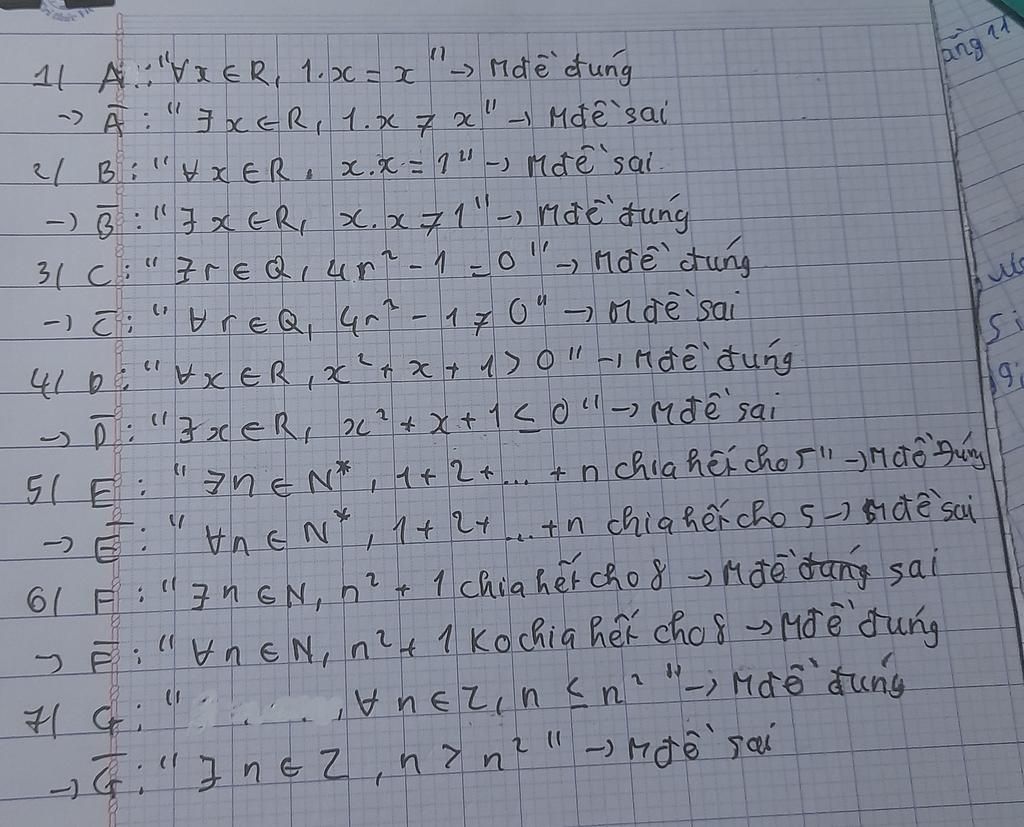 1/ A : "∀x ∈ R, 1.x = x" → Mđề đúng
→ A̅ : "∃x ∈ R, 1.x ≠ x" → Mđề sai
2/ B : "∀x ∈ R, x.x = 1" → Mđề sai.
→ B̅ : "∃x ∈ R, x.x ≠ 1" → Mđề đúng
3/ C : "∃r ∈ Q, 4r² - 1 = 0" → Mđề đúng
→ C̅ : "∀r ∈ Q, 4r² - 1 ≠ 0" → Mđề sai
4/ D : "∀x ∈ R, x² + x + 1 > 0" → Mđề đúng
→ D̅ : "∃x ∈ R, x² + x + 1 ≤ 0" → Mđề sai
5/ E : "∃n ∈ N*, 1 + 2 + ... + n chia hết cho 5" → Mđề Đúng
→ E̅ : "∀n ∈ N*, 1 + 2 + ... + n chia hết cho 5 → Mđề sai
6/ F : "∃n ∈ N, n² + 1 chia hết cho 8 → Mđề đúng sai
→ F̅ : "∀n ∈ N, n² + 1 ko chia hết cho 8 → Mđề đúng
7/ G : " , ∀n ∈ Z, n ≤ n²" → Mđề đúng
→ G̅ : "∃n ∈ Z, n > n²" → Mđề sai